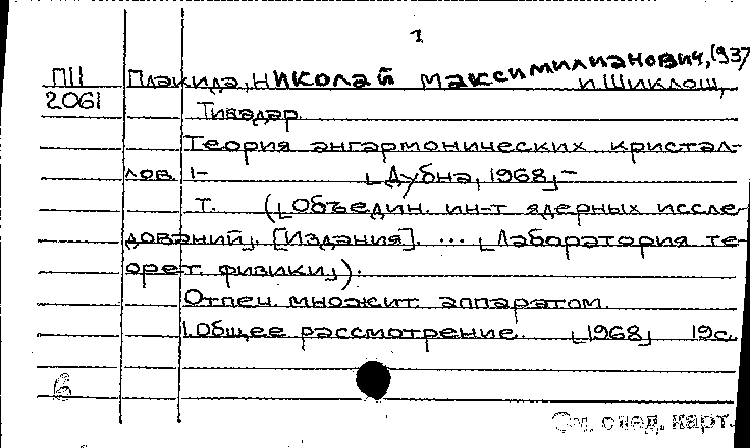 1
П11 Плакида, Николай Максимилианович, 1937
2061 и Шиклош,
Тивадар.
Теория ангармонических кристал-
лов. 1- ⌊Дубна, 1968⌋-
т. (⌊Объедин. ин-т ядерных иссле-
дований⌋. [Издания]. ... ⌊Лаборатория те-
орет. физики⌋).
Отпеч. множит. аппаратом.
1. Общее рассмотрение. ⌊1968⌋ 19с.
б
См. след. карт.